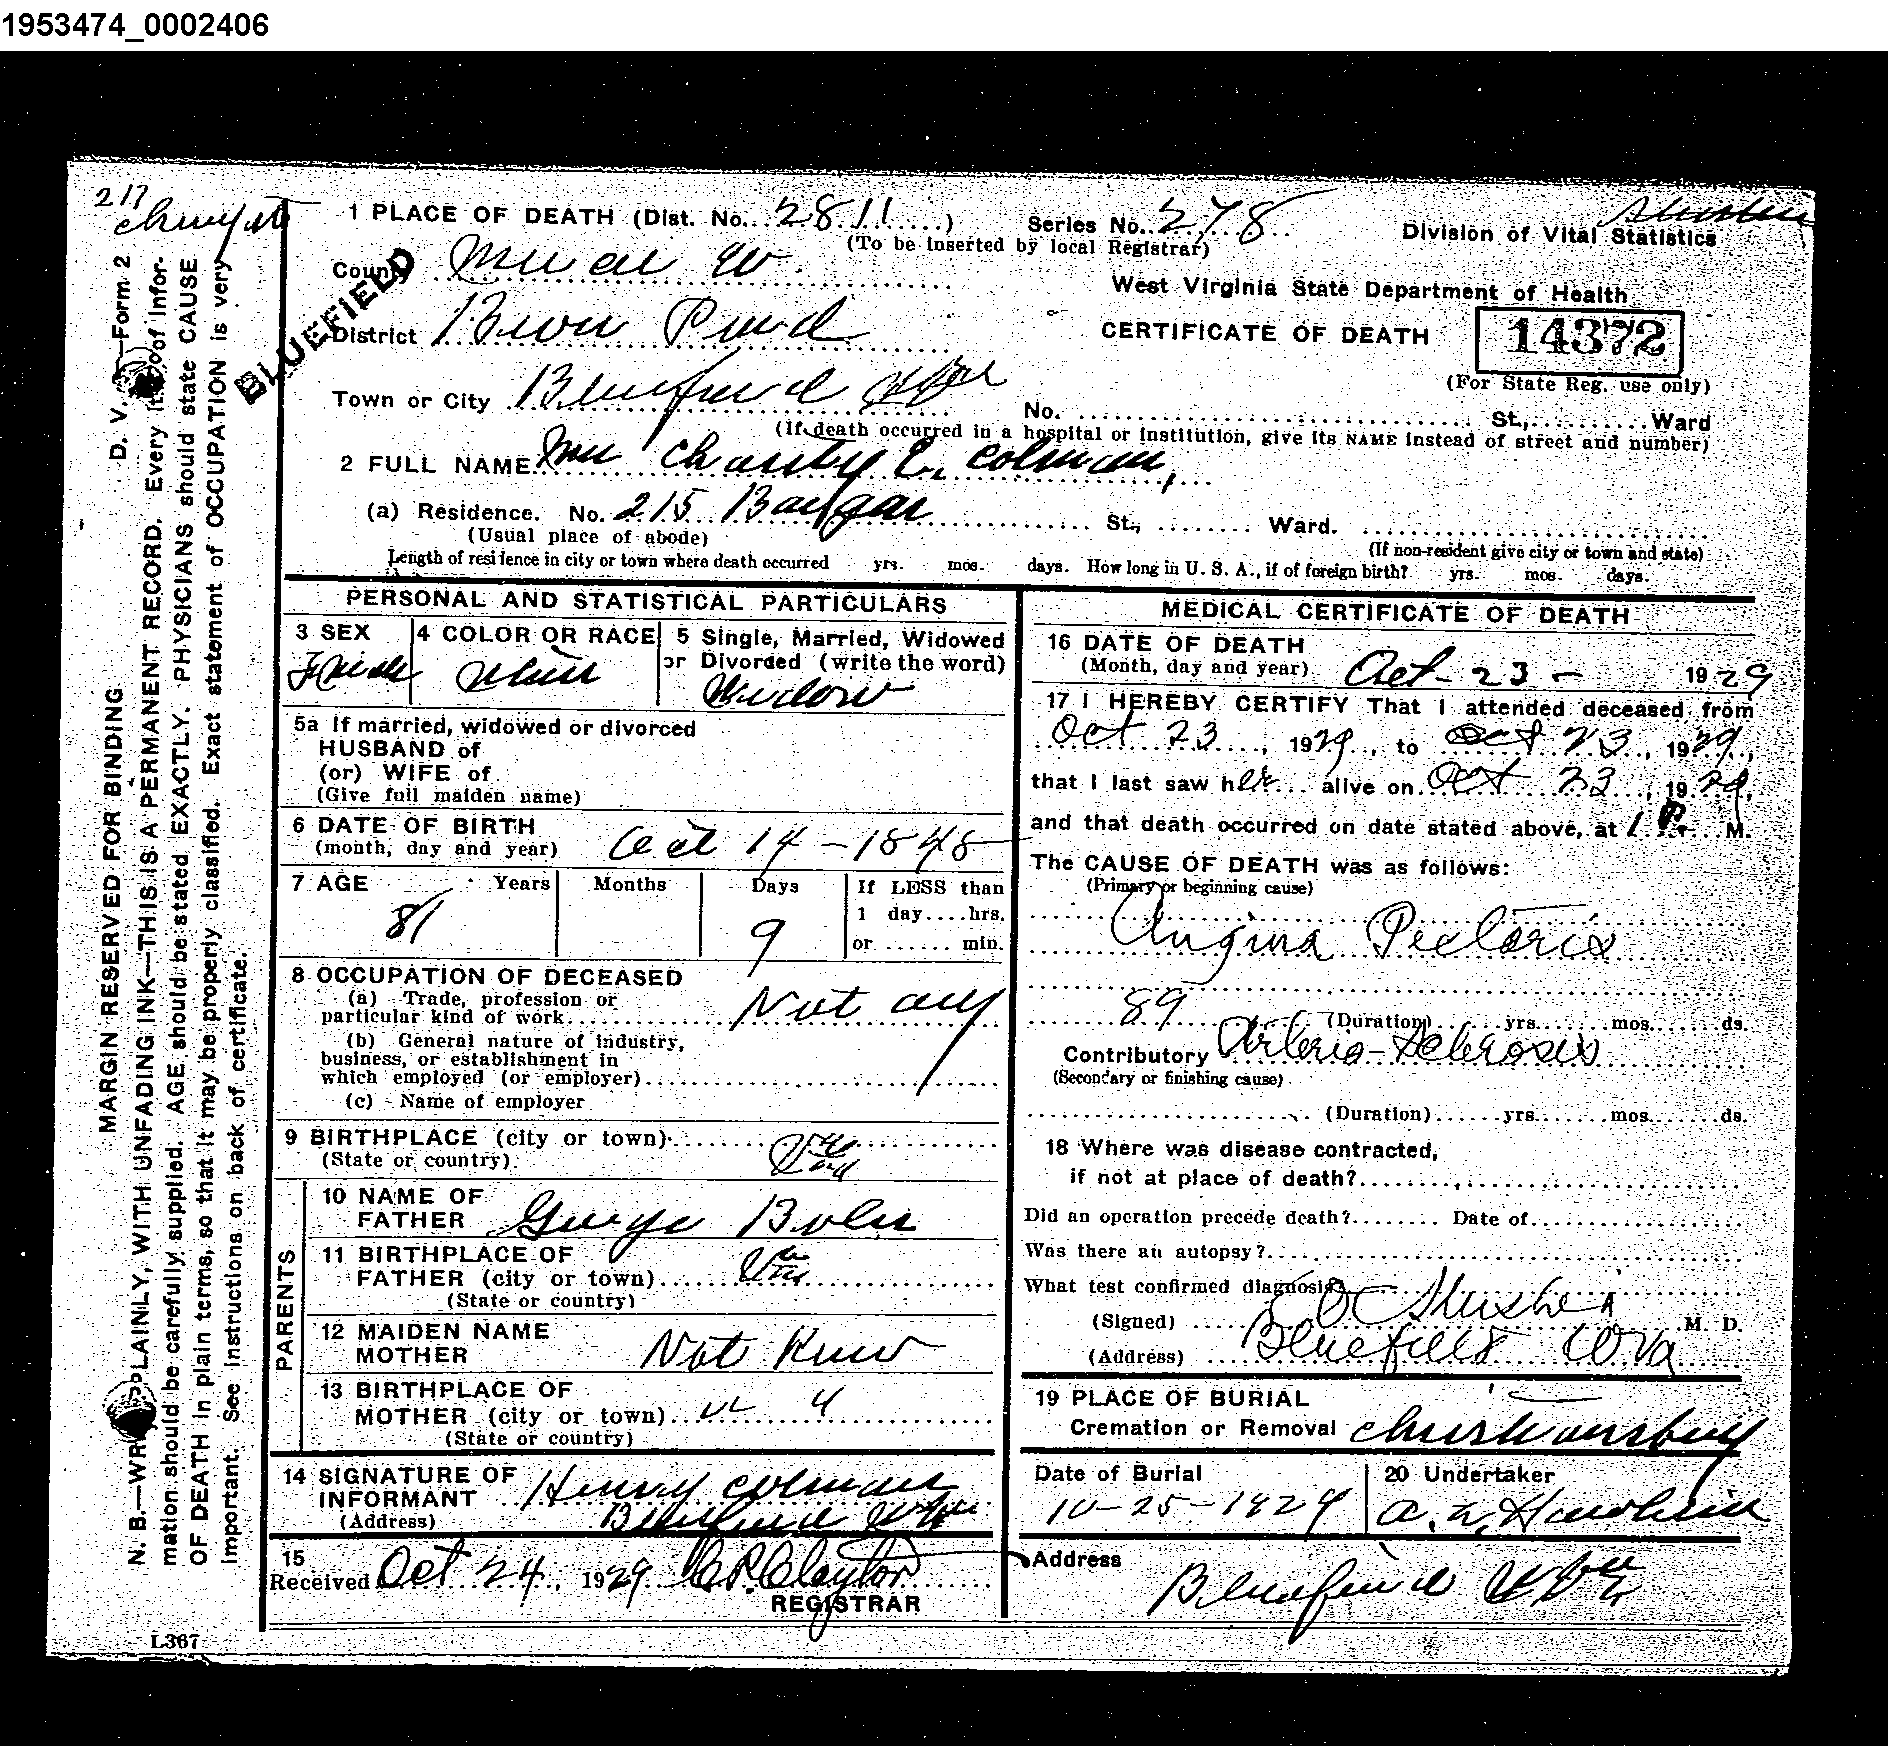 1953474_0002406
217
1 PLACE OF DEATH (Dist. No. 2811)
Series No. 278
(To be inserted by local Registrar)
Division of Vital Statistics
County
BLUEFIELD
West Virginia State Department of Health
District
CERTIFICATE OF DEATH
14372
(For State Reg. use only)
Town or City Bluefield W Va
No. St., Ward
(If death occurred in a hospital or institution, give its NAME instead of street and number)
2 FULL NAME Mrs Charity E. Colman,
(a) Residence. No. 215 St., Ward.
(Usual place of abode)
(If non-resident give city or town and state)
Length of residence in city or town where death occurred yrs. mos. days. How long in U. S. A., if of foreign birth? yrs. mos. days.
PERSONAL AND STATISTICAL PARTICULARS
3 SEX
4 COLOR OR RACE
5 Single, Married, Widowed
or Divorced (write the word)
Female
White
Widow
5a If married, widowed or divorced
HUSBAND of
(or) WIFE of
(Give full maiden name)
6 DATE OF BIRTH
(month, day and year) Oct 14 - 1848
7 AGE Years Months Days If LESS than
1 day....hrs.
or ....... min.
81 9
8 OCCUPATION OF DECEASED
(a) Trade, profession or
particular kind of work Not any
(b) General nature of industry,
business, or establishment in
which employed (or employer)
(c) Name of employer
9 BIRTHPLACE (city or town)
(State or country)
PARENTS
10 NAME OF
FATHER George
11 BIRTHPLACE OF
FATHER (city or town) Va
(State or country)
12 MAIDEN NAME
MOTHER Not Know
13 BIRTHPLACE OF
MOTHER (city or town)
(State or country)
14 SIGNATURE OF
INFORMANT Henry Colman
(Address) Bluefield W Va
15
Received Oct 24, 1929 C. P. Claytor
REGISTRAR
MEDICAL CERTIFICATE OF DEATH
16 DATE OF DEATH
(Month, day and year) Oct - 23 - 1929
17 I HEREBY CERTIFY That I attended deceased from
Oct 23, 1929, to Oct 23, 1929,
that I last saw her alive on Oct 23, 1929,
and that death occurred on date stated above, at 1 P. M.
The CAUSE OF DEATH was as follows:
(Primary or beginning cause)
Angina Pectoris
89 (Duration) yrs. mos. ds.
Contributory Arterio-Sclerosis
(Secondary or finishing cause)
(Duration) yrs. mos. ds.
18 Where was disease contracted,
if not at place of death?
Did an operation precede death? Date of
Was there an autopsy?
What test confirmed diagnosis
(Signed) M. D.
(Address) Bluefield W Va
19 PLACE OF BURIAL
Cremation or Removal Christiansburg
Date of Burial
10-25-1929
20 Undertaker
Address
Bluefield W Va
D. V. Form 2
MARGIN RESERVED FOR BINDING
N. B.—WRITE PLAINLY, WITH UNFADING INK—THIS IS A PERMANENT RECORD. Every item of infor-
mation should be carefully supplied. AGE should be stated EXACTLY. PHYSICIANS should state CAUSE
OF DEATH in plain terms, so that it may be properly classified. Exact statement of OCCUPATION is very
important. See instructions on back of certificate.
L367